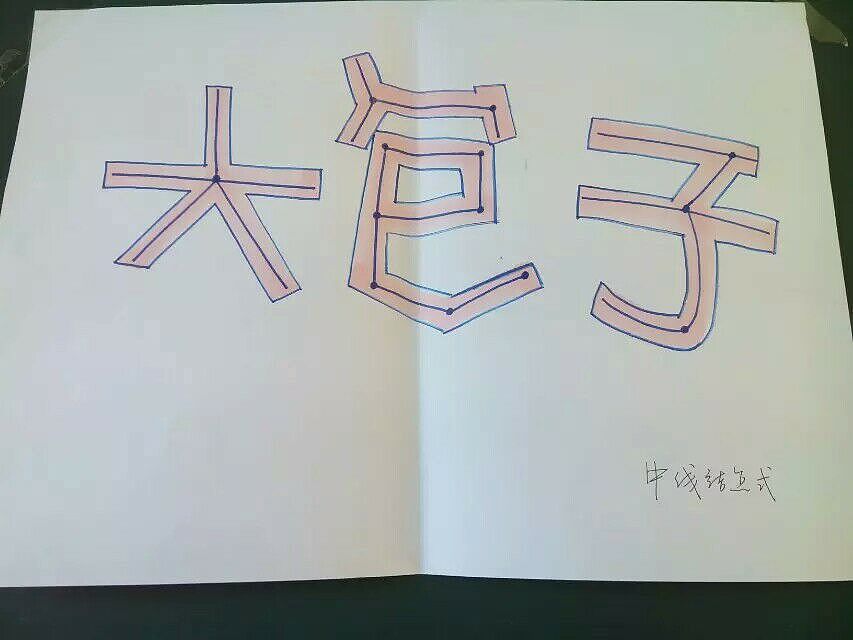 大包子
中线结点式